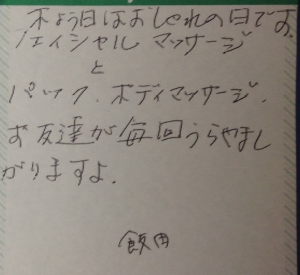 木よう日はおしゃれの日です。
フェイシャル マッサージ
と
パック、ボディマッサージ、
お友達が毎回うらやまし
がりますよ。
飯田